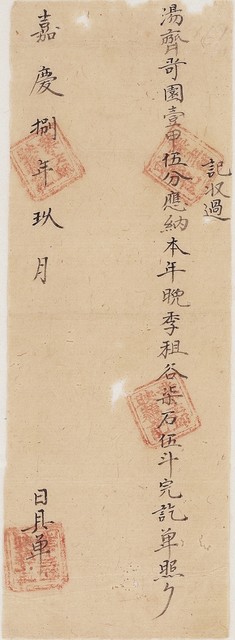 記收過
湯齊哥園壹甲伍分應納本年晚季租谷柒石伍斗完訖單照
嘉慶捌年玖月　日具單